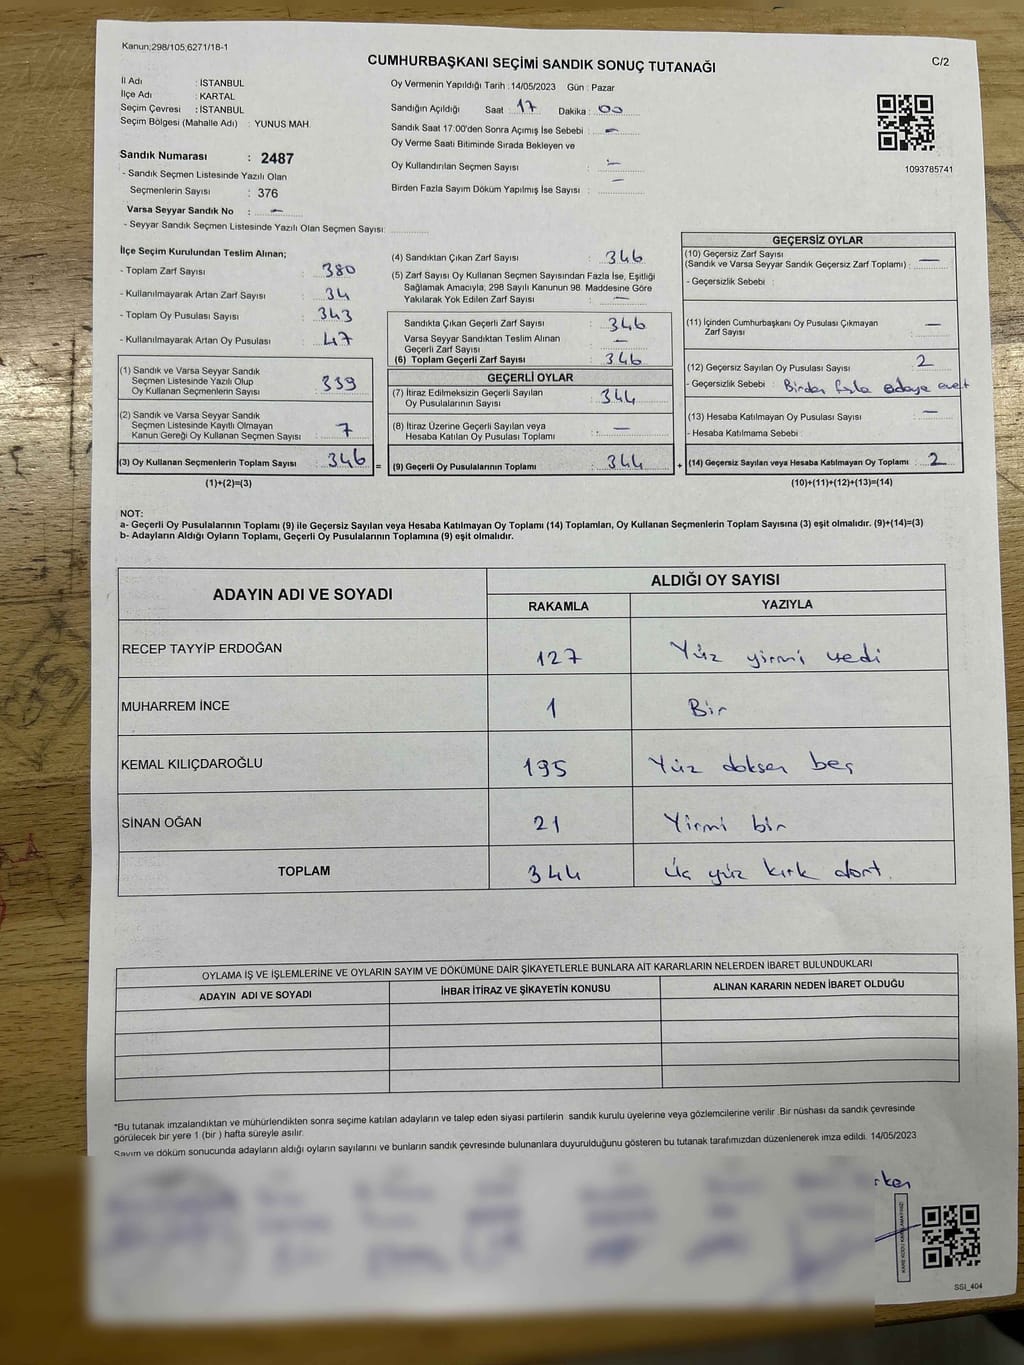 Kanun:298/105;6271/18-1
CUMHURBAŞKANI SEÇİMİ SANDIK SONUÇ TUTANAĞI
C/2
İl Adı : İSTANBUL
İlçe Adı : KARTAL
Seçim Çevresi : İSTANBUL
Seçim Bölgesi (Mahalle Adı) : YUNUS MAH.
Sandık Numarası : 2487
- Sandık Seçmen Listesinde Yazılı Olan
Seçmenlerin Sayısı : 376
Varsa Seyyar Sandık No : —
- Seyyar Sandık Seçmen Listesinde Yazılı Olan Seçmen Sayısı:
Oy Vermenin Yapıldığı Tarih :14/05/2023 Gün : Pazar
Sandığın Açıldığı Saat : 17 Dakika : 00
Sandık Saat 17:00'den Sonra Açımış İse Sebebi : —
Oy Verme Saati Bitiminde Sırada Bekleyen ve
Oy Kullandırılan Seçmen Sayısı : —
Birden Fazla Sayım Döküm Yapılmış İse Sayısı : —
1093785741
İlçe Seçim Kurulundan Teslim Alınan;
- Toplam Zarf Sayısı : 380
- Kullanılmayarak Artan Zarf Sayısı : 34
- Toplam Oy Pusulası Sayısı : 343
- Kullanılmayarak Artan Oy Pusulası : 47
(1) Sandık ve Varsa Seyyar Sandık
Seçmen Listesinde Yazılı Olup
Oy Kullanan Seçmenlerin Sayısı : 339
(2) Sandık ve Varsa Seyyar Sandık
Seçmen Listesinde Kayıtlı Olmayan
Kanun Gereği Oy Kullanan Seçmen Sayısı : 7
(3) Oy Kullanan Seçmenlerin Toplam Sayısı : 346 =
(1)+(2)=(3)
(4) Sandıktan Çıkan Zarf Sayısı : 346
(5) Zarf Sayısı Oy Kullanan Seçmen Sayısından Fazla İse, Eşitliği
Sağlamak Amacıyla, 298 Sayılı Kanunun 98. Maddesine Göre
Yakılarak Yok Edilen Zarf Sayısı : —
Sandıkta Çıkan Geçerli Zarf Sayısı : 346
Varsa Seyyar Sandıktan Teslim Alınan
Geçerli Zarf Sayısı : —
(6) Toplam Geçerli Zarf Sayısı : 346
GEÇERLİ OYLAR
(7) İtiraz Edilmeksizin Geçerli Sayılan
Oy Pusulalarının Sayısı : 344
(8) İtiraz Üzerine Geçerli Sayılan veya
Hesaba Katılan Oy Pusulası Toplamı : —
(9) Geçerli Oy Pusulalarının Toplamı : 344 +
GEÇERSİZ OYLAR
(10) Geçersiz Zarf Sayısı
(Sandık ve Varsa Seyyar Sandık Geçersiz Zarf Toplamı) : —
- Geçersizlik Sebebi :
(11) İçinden Cumhurbaşkanı Oy Pusulası Çıkmayan
Zarf Sayısı : —
(12) Geçersiz Sayılan Oy Pusulası Sayısı : 2
- Geçersizlik Sebebi : Birden fazla adaya evet
(13) Hesaba Katılmayan Oy Pusulası Sayısı : —
- Hesaba Katılmama Sebebi :
(14) Geçersiz Sayılan veya Hesaba Katılmayan Oy Toplamı : 2
(10)+(11)+(12)+(13)=(14)
NOT:
a- Geçerli Oy Pusulalarının Toplamı (9) ile Geçersiz Sayılan veya Hesaba Katılmayan Oy Toplamı (14) Toplamları, Oy Kullanan Seçmenlerin Toplam Sayısına (3) eşit olmalıdır. (9)+(14)=(3)
b- Adayların Aldığı Oyların Toplamı, Geçerli Oy Pusulalarının Toplamına (9) eşit olmalıdır.
ADAYIN ADI VE SOYADI ALDIĞI OY SAYISI
RAKAMLA YAZIYLA
RECEP TAYYİP ERDOĞAN 127 Yüz yirmi yedi
MUHARREM İNCE 1 Bir
KEMAL KILIÇDAROĞLU 195 Yüz doksan beş
SİNAN OĞAN 21 Yirmi bir
TOPLAM 344 Üç yüz kırk dört.
OYLAMA İŞ VE İŞLEMLERİNE VE OYLARIN SAYIM VE DÖKÜMÜNE DAİR ŞİKAYETLERLE BUNLARA AİT KARARLARIN NELERDEN İBARET BULUNDUKLARI
ADAYIN ADI VE SOYADI İHBAR İTİRAZ VE ŞİKAYETİN KONUSU ALINAN KARARIN NEDEN İBARET OLDUĞU
*Bu tutanak imzalandıktan ve mühürlendikten sonra seçime katılan adayların ve talep eden siyasi partilerin sandık kurulu üyelerine veya gözlemcilerine verilir .Bir nüshası da sandık çevresinde
görülecek bir yere 1 (bir ) hafta süreyle asılır.
Sayım ve döküm sonucunda adayların aldığı oyların sayılarını ve bunların sandık çevresinde bulunanlara duyurulduğunu gösteren bu tutanak tarafımızdan düzenlenerek imza edildi. 14/05/2023
SSI_404